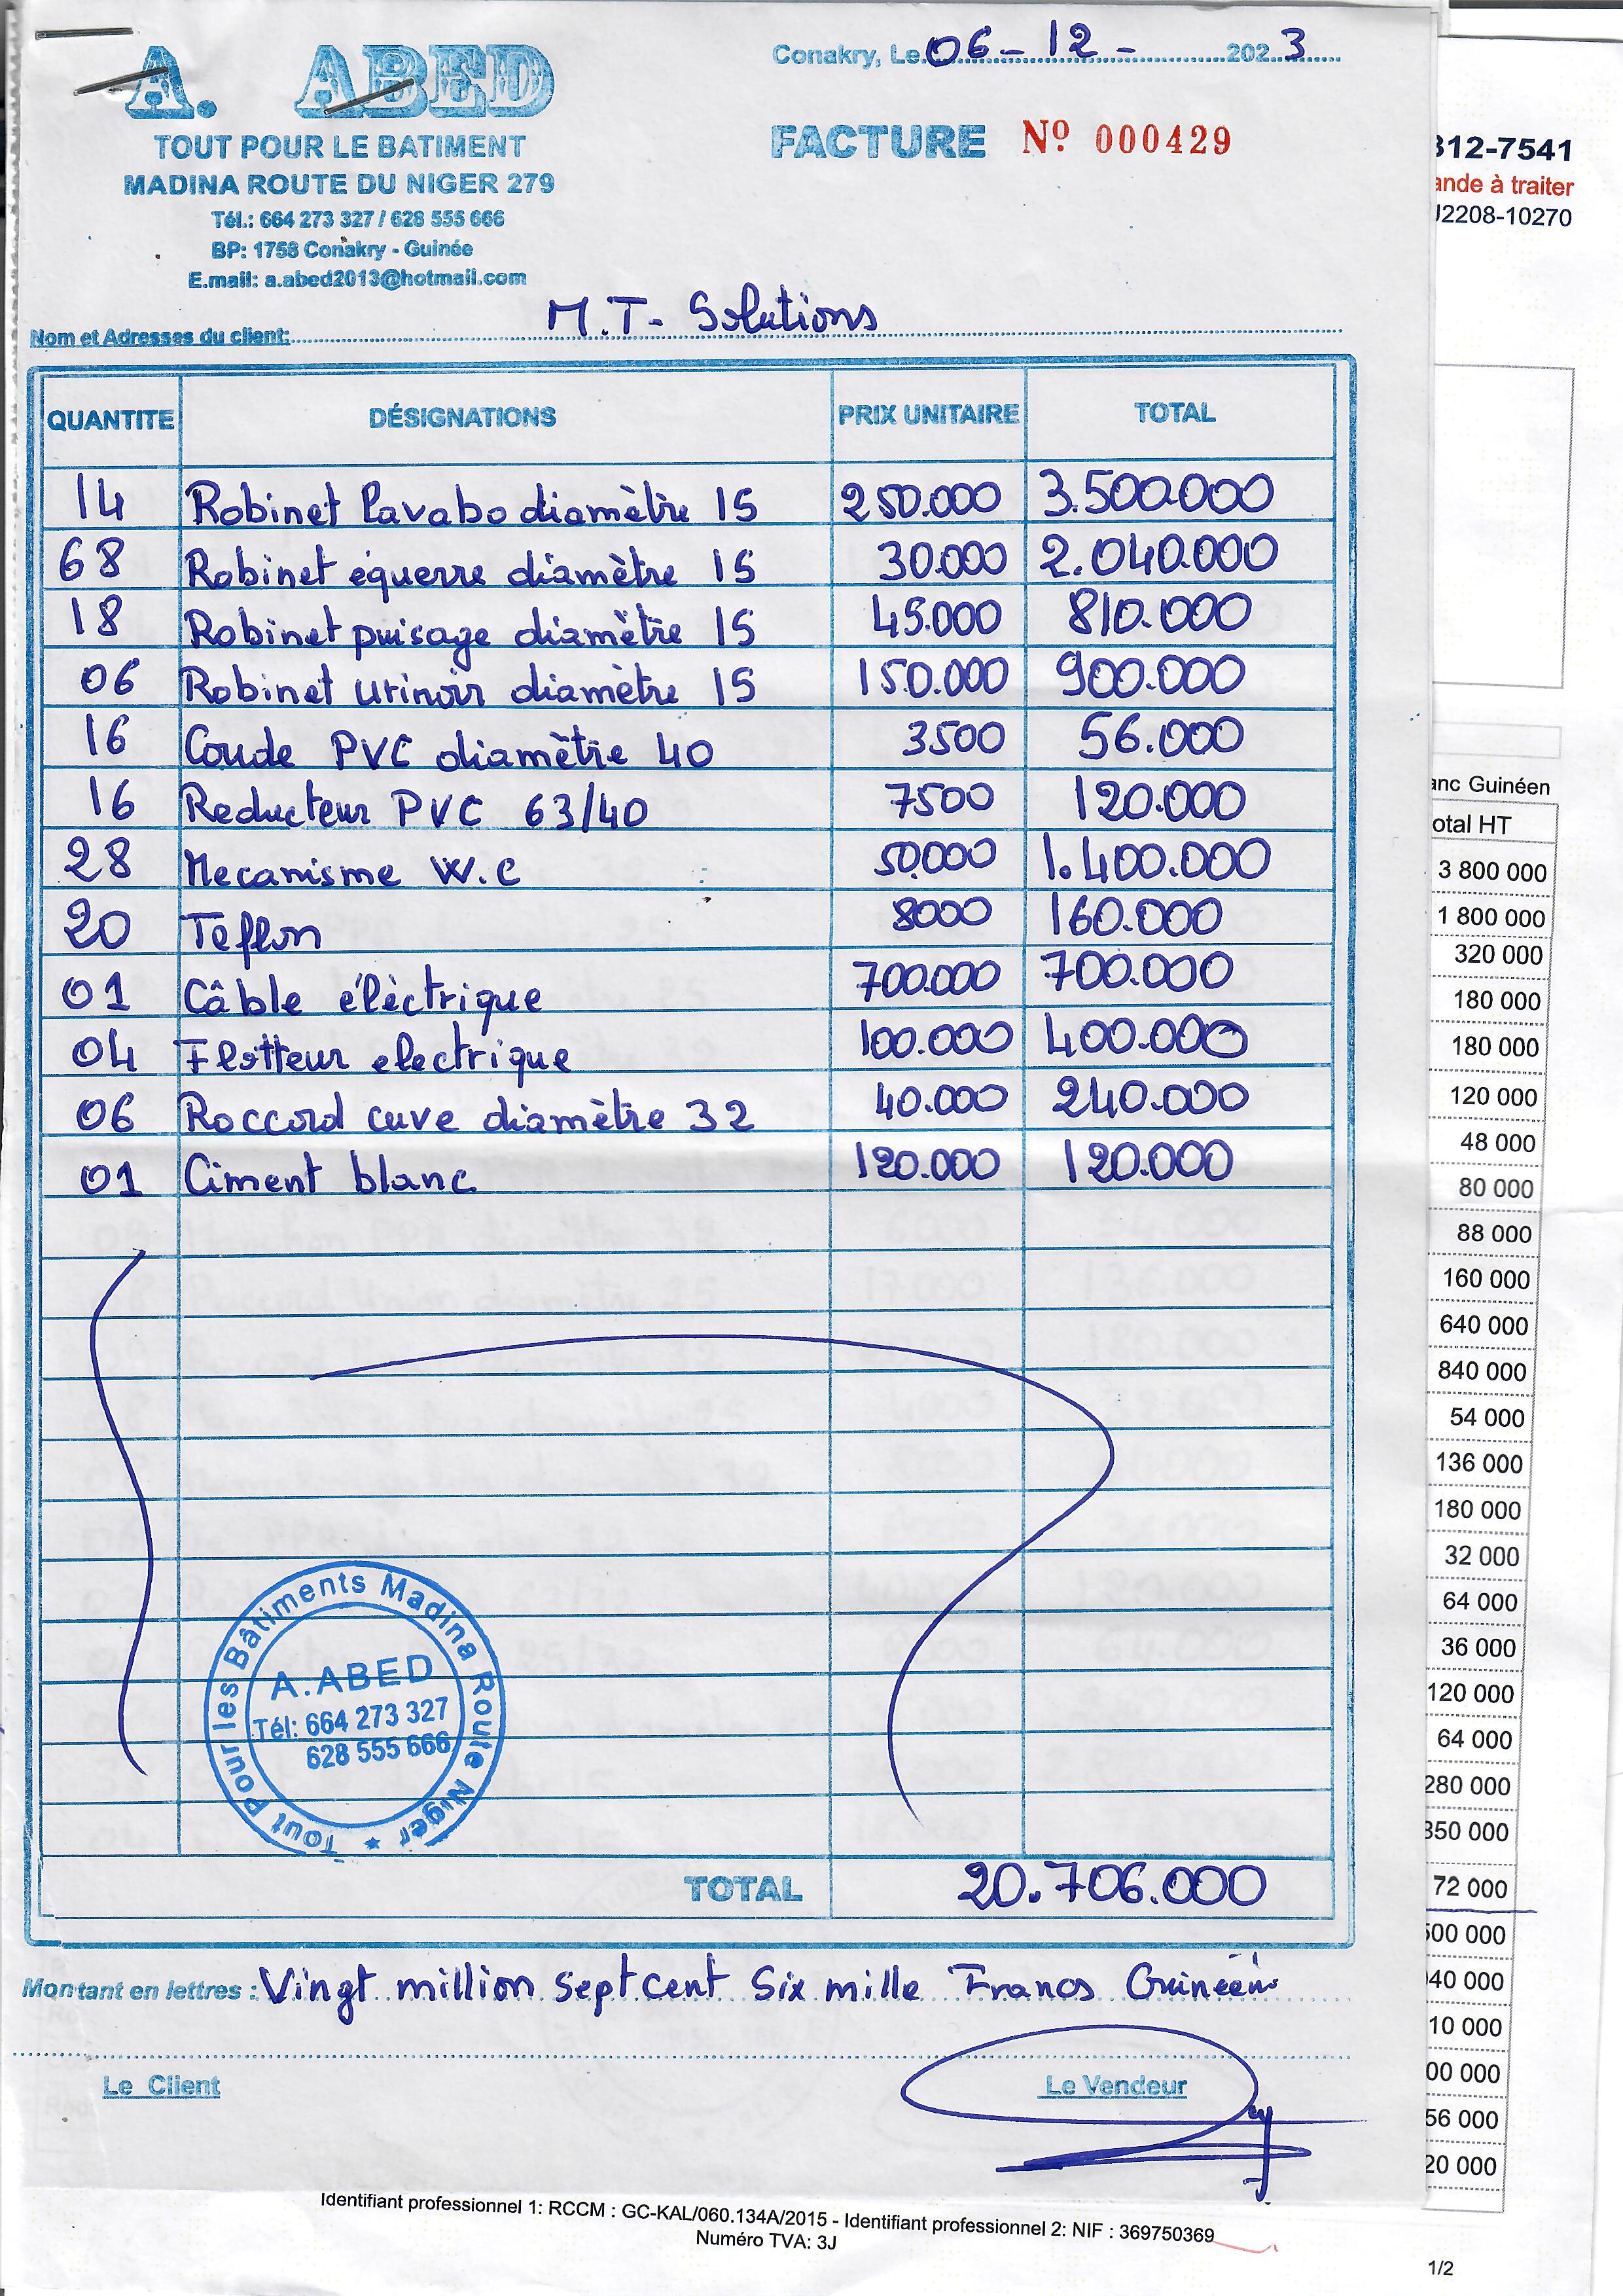 A. ABED
TOUT POUR LE BATIMENT
MADINA ROUTE DU NIGER 279
Tél.: 664 273 327 / 628 555 666
BP: 1758 Conakry - Guinée
E.mail: a.abed2013@hotmail.com
Conakry, Le 06 - 12 - 2023
FACTURE Nº 000429
Nom et Adresses du client: M.T- Solutions
QUANTITE DÉSIGNATIONS PRIX UNITAIRE TOTAL
14 Robinet Lavabo diamètre 15 250.000 3.500.000
68 Robinet équerre diamètre 15 30.000 2.040.000
18 Robinet puisage diamètre 15 45.000 810.000
06 Robinet urinoir diamètre 15 150.000 900.000
16 Coude PVC diamètre 40 3500 56.000
16 Reducteur PVC 63/40 7500 120.000
28 Mecanisme W.C 50.000 1.400.000
20 Teflon 8000 160.000
01 Câble élèctrique 700.000 700.000
04 Flotteur electrique 100.000 400.000
06 Raccord cuve diamètre 32 40.000 240.000
01 Ciment blanc 120.000 120.000
Tout Pour les Bâtiments Madina Route Niger *
A.ABED
Tél: 664 273 327
628 555 666
TOTAL 20.706.000
Montant en lettres : Vingt million Sept cent Six mille Francs Guinéens
Le Client Le Vendeur
Identifiant professionnel 1: RCCM : GC-KAL/060.134A/2015 - Identifiant professionnel 2: NIF : 369750369
Numéro TVA: 3J
1/2
312-7541
ande à traiter
J2208-10270
anc Guinéen
otal HT
3 800 000
1 800 000
320 000
180 000
180 000
120 000
48 000
80 000
88 000
160 000
640 000
840 000
54 000
136 000
180 000
32 000
64 000
36 000
120 000
64 000
280 000
350 000
72 000
500 000
40 000
10 000
00 000
56 000
20 000